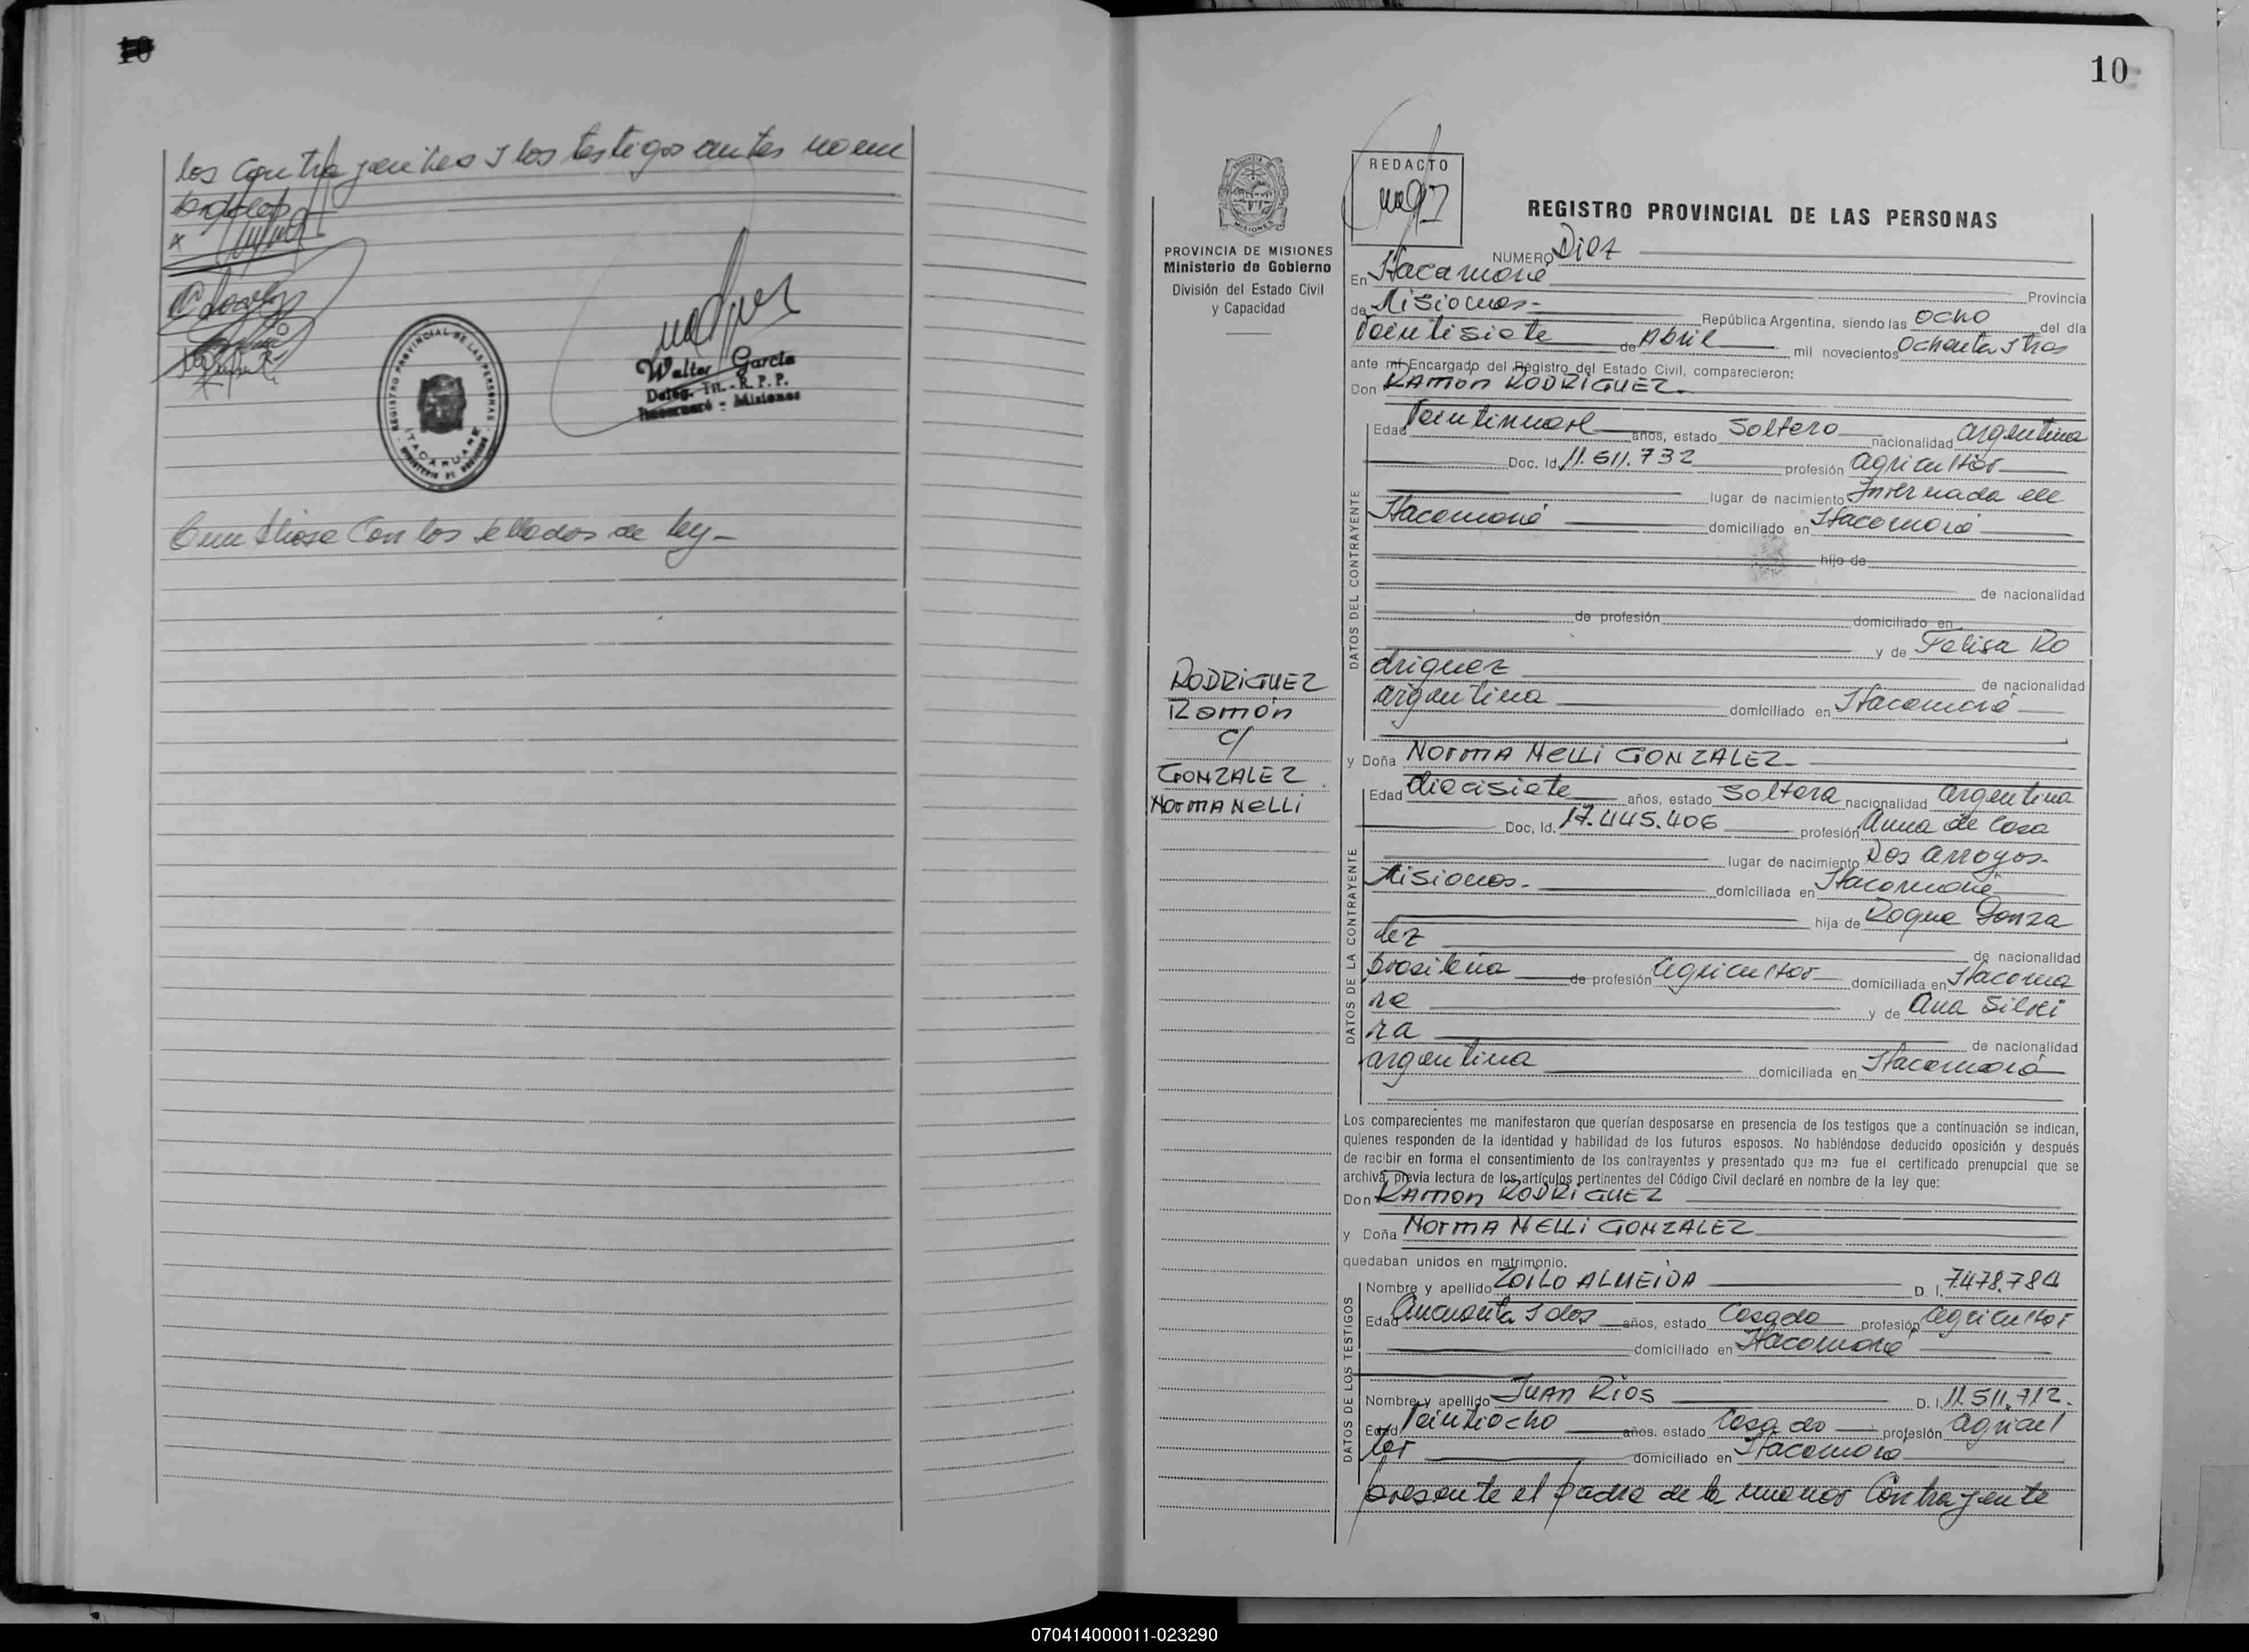 10
los Contrayentes y los testigos antes nom
brados
x
Walter Garcia
Deleg. Tit. - R. P. P.
Itacaruaré - Misiones
REGISTRO PROVINCIAL DE LAS PERSONAS
ITACARUARE
Cumpliose Con los sellados de ley -
10
PROVINCIA DE MISIONES
Ministerio de Gobierno
División del Estado Civil
y Capacidad
RODRIGUEZ
Ramón
c/
GONZALEZ
NORMA NELLI
REDACTO
REGISTRO PROVINCIAL DE LAS PERSONAS
NUMERO Diez
En Itacaruaré
Provincia
de Misiones - República Argentina, siendo las ocho del día
Veintisiete de Abril mil novecientos Ochenta y tres
ante mí Encargado del Registro del Estado Civil, comparecieron:
Don RAMON RODRIGUEZ -
DATOS DEL CONTRAYENTE
Edad Veintinueve años, estado Soltero nacionalidad argentina
Doc. Id. 11.611.732 profesión agricultor
lugar de nacimiento Invernada de
Itacaruaré domiciliado en Itacaruaré
hijo de
de nacionalidad
de profesión domiciliado en
y de Felisa Ro
driguez de nacionalidad
argentina domiciliado en Itacaruaré
y Doña NORMA NELLI GONZALEZ -
DATOS DE LA CONTRAYENTE
Edad diecisiete años, estado Soltera nacionalidad argentina
Doc. Id. 17.445.406 profesión Ama de Casa
lugar de nacimiento Dos Arroyos -
Misiones - domiciliada en Itacaruaré
hija de Roque Gonza
lez de nacionalidad
brasileña de profesión agricultor domiciliada en Itacarua
re y de Ana Silvei
ra de nacionalidad
argentina domiciliada en Itacaruaré
Los comparecientes me manifestaron que querían desposarse en presencia de los testigos que a continuación se indican,
quienes responden de la identidad y habilidad de los futuros esposos. No habiéndose deducido oposición y después
de recibir en forma el consentimiento de los contrayentes y presentado que me fue el certificado prenupcial que se
archiva, previa lectura de los artículos pertinentes del Código Civil declaré en nombre de la ley que:
Don RAMON RODRIGUEZ
y Doña NORMA NELLI GONZALEZ
quedaban unidos en matrimonio.
DATOS DE LOS TESTIGOS
Nombre y apellido ZOILO ALMEIDA D. I. 7.478.784
Edad Cincuenta y dos años, estado Casado profesión agricultor
domiciliado en Itacaruaré
Nombre y apellido JUAN RIOS D. I. 11.511.712.
Edad Veintiocho años. estado Casado profesión agricul
tor domiciliado en Itacaruaré
presente el padre de la menor Contrayente
070414000011-023290